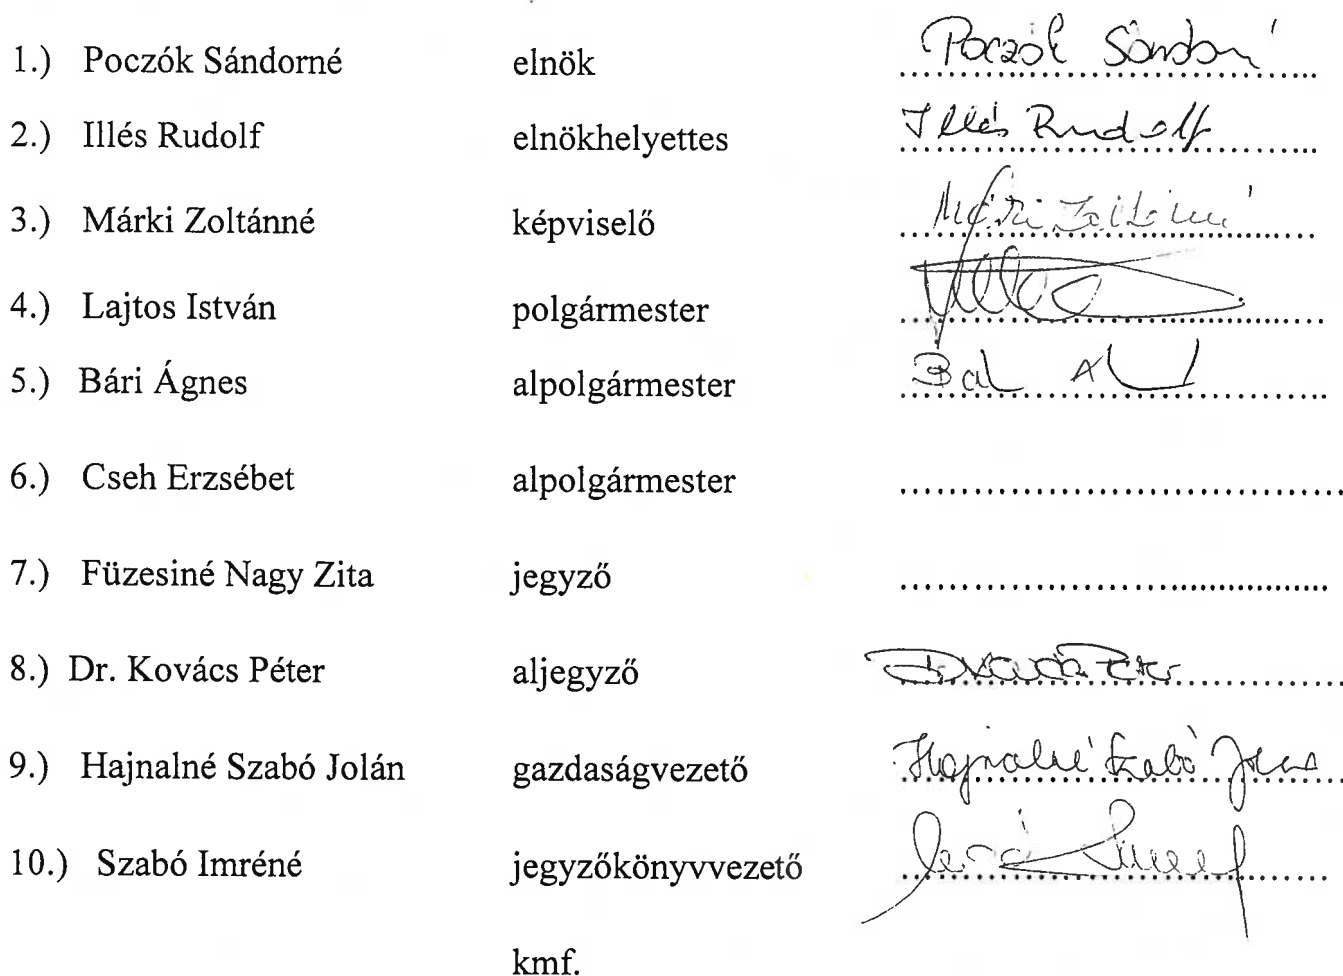 1.) Poczók Sándorné elnök Poczók Sándorné
2.) Illés Rudolf elnökhelyettes Illés Rudolf
3.) Márki Zoltánné képviselő Márki Zoltánné
4.) Lajtos István polgármester
5.) Bári Ágnes alpolgármester
6.) Cseh Erzsébet alpolgármester ........................................
7.) Füzesiné Nagy Zita jegyző ........................................
8.) Dr. Kovács Péter aljegyző Dr. Kovács Péter
9.) Hajnalné Szabó Jolán gazdaságvezető Hajnalné Szabó
10.) Szabó Imréné jegyzőkönyvvezető
kmf.